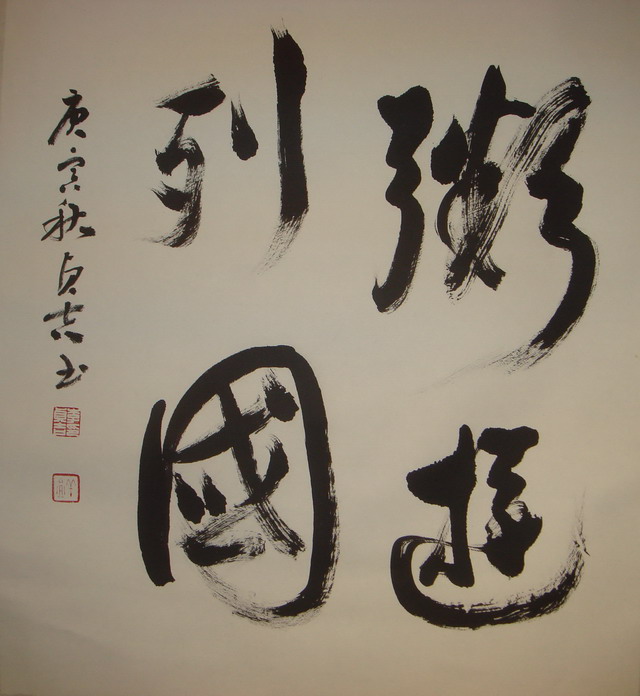 粥遊
列國
庚寅秋貞吉书